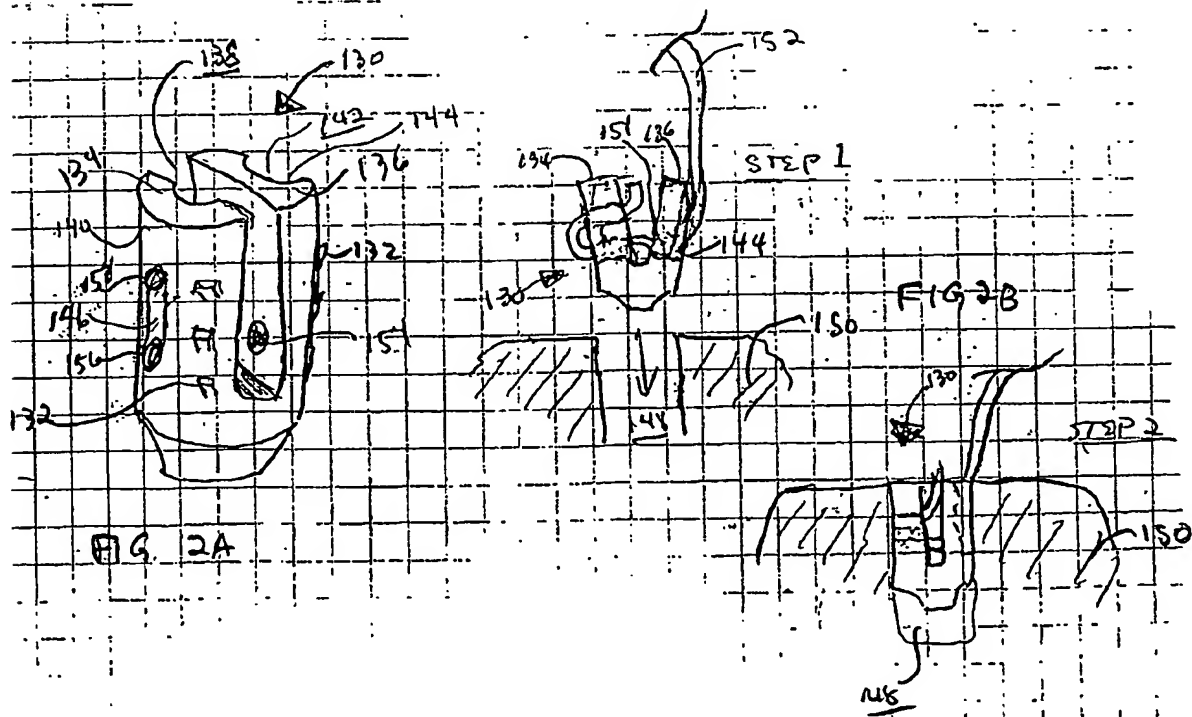 138
130
142
144
134
136
140
132
154
146
156
151
132
FIG. 2A
152
134
151
136
STEP 1
144
130
FIG 2B
150
148
130
STEP 2
150
148